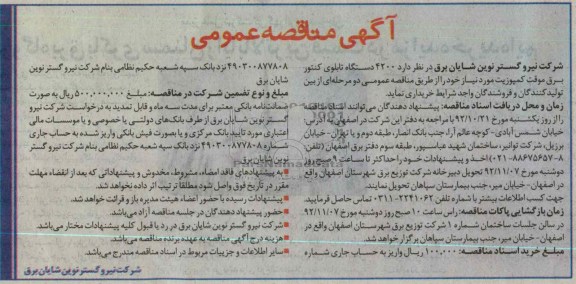 آگهی مناقصه عمومی
شرکت نیرو گستر نوین شایان برق در نظر دارد ۴۲۰۰ دستگاه تابلوی کنتور
برق موقت کمپوزیت مورد نیاز خود را از طریق مناقصه عمومی دو مرحله‌ای از بین
تولید کنندگان و فروشندگان واجد شرایط خریداری نماید.
زمان و محل دریافت اسناد مناقصه: پیشنهاد دهندگان می‌توانند اسناد مناقصه
را از روز یکشنبه مورخ ۹۲/۱۰/۲۱ با مراجعه به دفتر این شرکت در اصفهان
خیابان شمس آبادی- کوچه عالم آرا، جنب بانک انصار، طبقه دوم و یا تهران- خیابان
برزیل، شرکت توانیر، ساختمان شهید عباسپور، طبقه سوم دفتر برق اصفهان (تلفن
۸۸۶۷۵۶۵۷-۸-۰۲۱) اخذ و پیشنهادات خود را حداکثر تا ساعت ۹ صبح روز
دوشنبه مورخ ۹۲/۱۱/۰۷ تحویل دبیرخانه شرکت توزیع برق شهرستان اصفهان واقع
در اصفهان- خیابان میر، جنب بیمارستان سپاهان تحویل نمایند.
جهت کسب اطلاعات بیشتر با شماره تلفن ۲۲۴۱۰۶۲-۰۳۱۱ تماس حاصل فرمایید.
زمان بازگشایی پاکات مناقصه: راس ساعت ۱۰ صبح روز دوشنبه مورخ ۹۲/۱۱/۰۷
در سالن جلسات ساختمان شماره ۱ شرکت توزیع برق شهرستان اصفهان واقع در
اصفهان- خیابان میر، جنب بیمارستان سپاهان برگزار خواهد شد.
مبلغ خرید اسناد مناقصه: ۱۰۰,۰۰۰ ریال واریز به حساب جاری شماره
۴۹۰۳۰۰۸۷۷۸۰۸ نزد بانک سپه شعبه حکیم نظامی بنام شرکت نیرو گستر نوین
شایان برق
مبلغ و نوع تضمین شرکت در مناقصه: مبلغ ۵۰۰,۰۰۰,۰۰۰ ریال به صورت
ضمانتنامه بانکی معتبر برای مدت سه ماه و قابل تمدید به درخواست شرکت نیرو
گستر نوین شایان برق از طرف بانک‌های دولتی یا خصوصی و یا موسسات مالی
اعتباری مورد تایید بانک مرکزی و یا بصورت فیش بانکی واریز شده به حساب جاری
شماره ۴۹۰۳۰۰۸۷۷۸۰۸ نزد بانک سپه شعبه حکیم نظامی بنام شرکت نیرو گستر
نوین شایان برق
به پیشنهادهای فاقد امضاء، مشروط، مخدوش و پیشنهاداتی که بعد از انقضاء مهلت
مقرر در تاریخ فوق واصل شود مطلقا ترتیب اثر داده نخواهد شد.
پیشنهادات رسیده با حضور اعضاء هیئت مدیره باز و قرائت خواهد شد.
حضور پیشنهاد دهندگان در جلسه مناقصه آزاد می‌باشد.
شرکت نیرو گستر نوین شایان برق در رد یا قبول کلیه پیشنهادات مختار می‌باشد.
هزینه درج آگهی مناقصه به عهده برنده مناقصه می‌باشد.
سایر اطلاعات و جزییات مربوط در اسناد مناقصه مندرج می‌باشد.
شرکت نیرو گستر نوین شایان برق